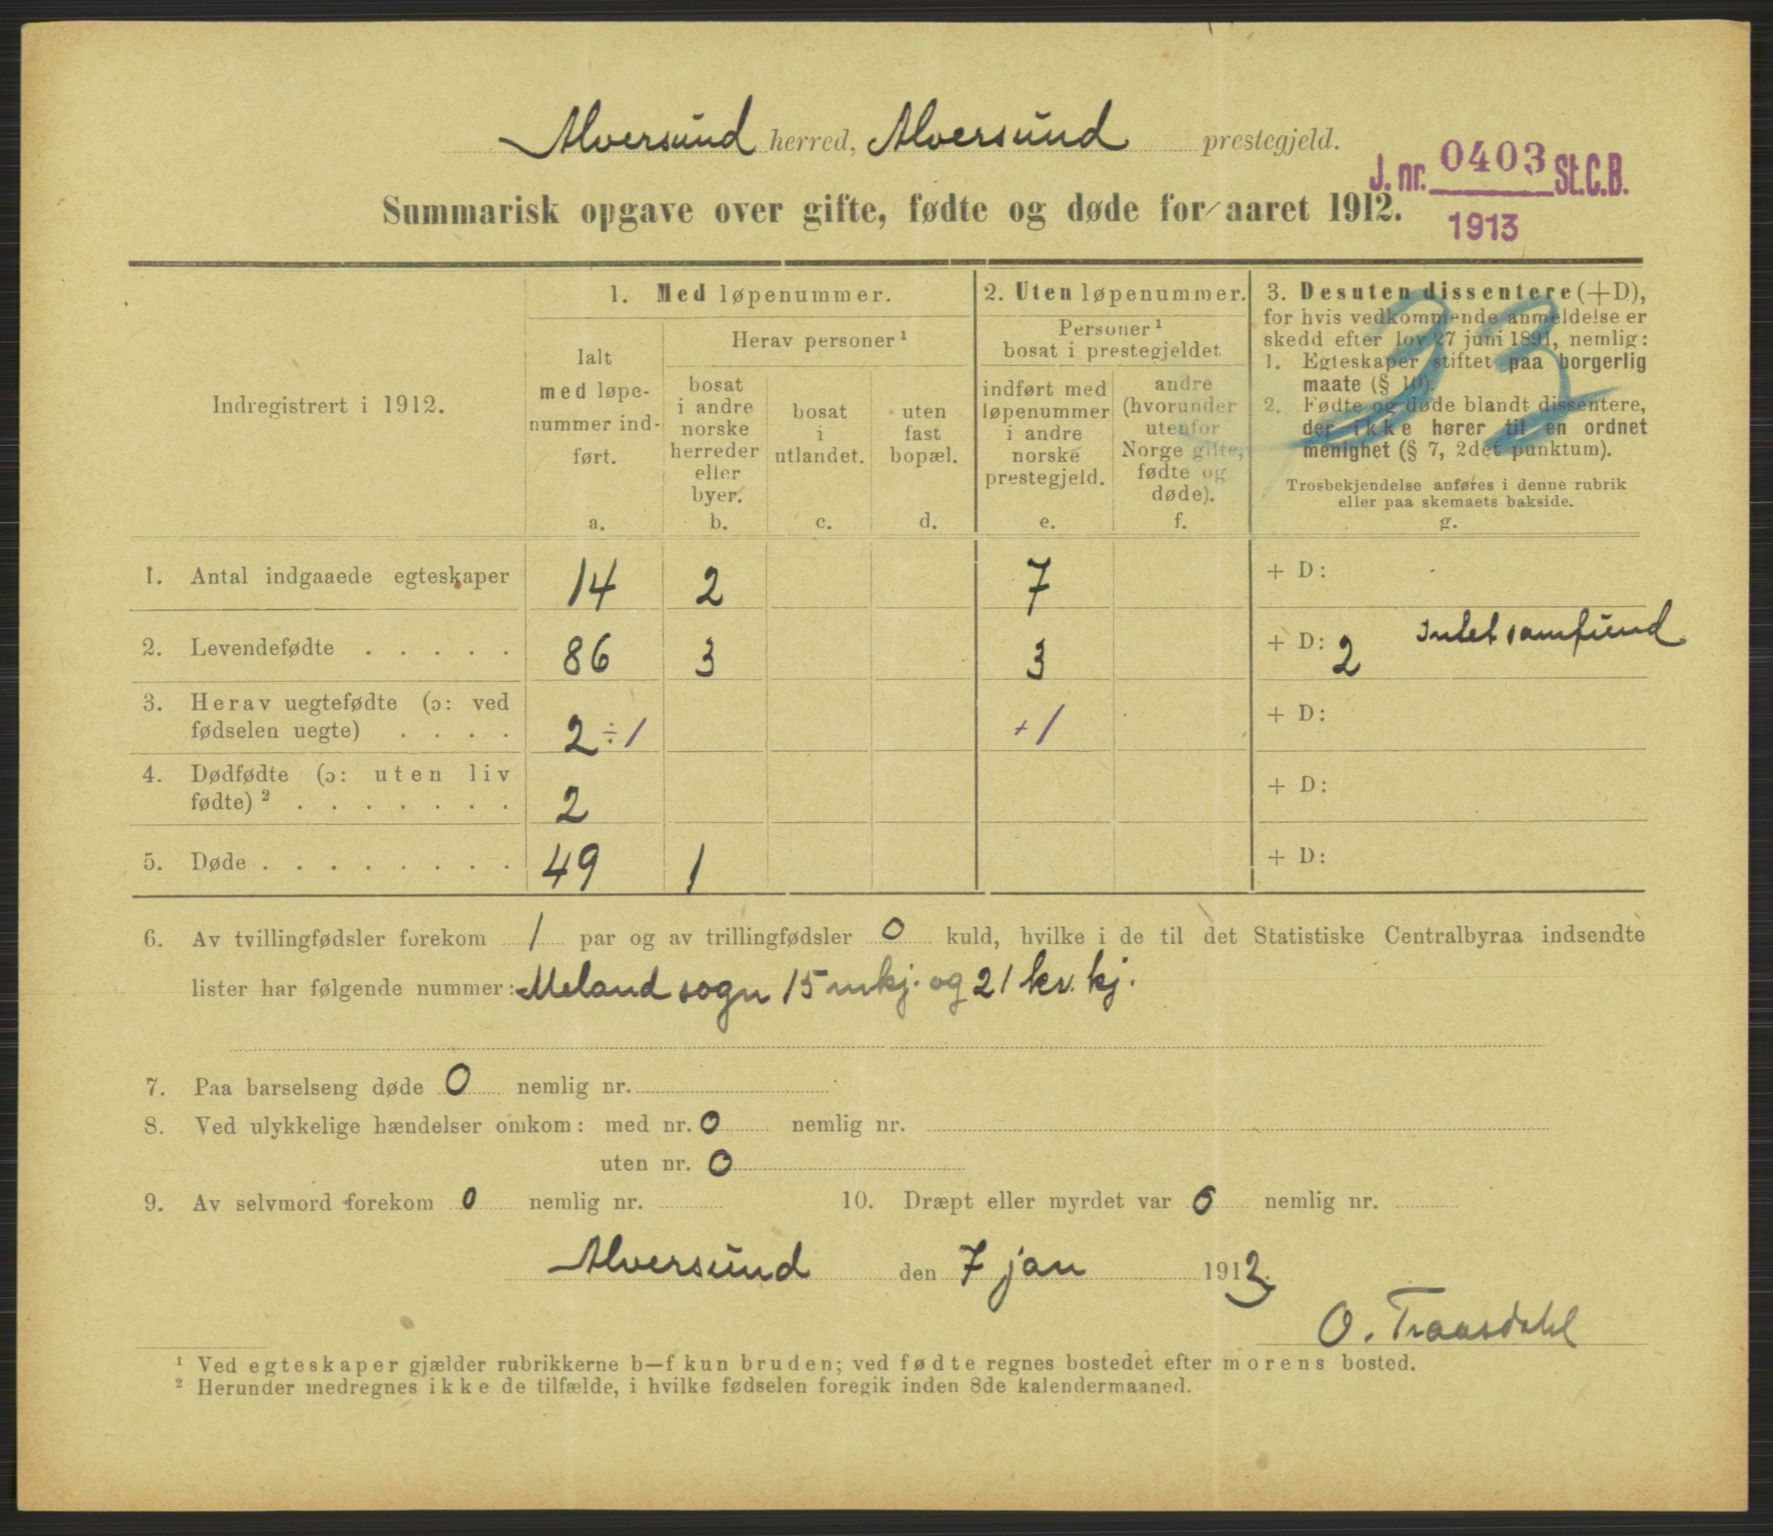 Alversund herred, Alversund prestegjeld.
J. nr. 0403 St.C.B.
1913
Summarisk opgave over gifte, fødte og døde for aaret 1912.
23
Indregistrert i 1912.
1. Med løpenummer.
Ialt
med løpe-
nummer ind-
ført.
a.
Herav personer ¹
bosat
i andre
norske
herreder
eller
byer.
b.
bosat
i
utlandet.
c.
uten
fast
bopæl.
d.
2. Uten løpenummer.
Personer ¹
bosat i prestegjeldet
indført med
løpenummer
i andre
norske
prestegjeld.
e.
andre
(hvorunder
utenfor
Norge gifte,
fødte og
døde).
f.
3. Desuten dissentere (+D),
for hvis vedkommende anmeldelse er
skedd efter lov 27 juni 1891, nemlig:
1. Egteskaper stiftet paa borgerlig
maate (§ 10).
2. Fødte og døde blandt dissentere,
der ikke hører til en ordnet
menighet (§ 7, 2det punktum).
Trosbekjendelse anføres i denne rubrik
eller paa skemaets bakside.
g.
1. Antal indgaaede egteskaper 14 2 7 + D:
2. Levendefødte . . . . . 86 3 3 + D: 2 Intet samfund
3. Herav uegtefødte (ɔ: ved
fødselen uegte) . . . . 2 ÷ 1 + 1 + D:
4. Dødfødte (ɔ: uten liv
fødte) ² . . . . . . . 2 + D:
5. Døde . . . . . . . . 49 1 + D:
6. Av tvillingfødsler forekom 1 par og av trillingfødsler 0 kuld, hvilke i de til det Statistiske Centralbyraa indsendte
lister har følgende nummer: Meland sogn 15 mkj. og 21 kv. kj.
7. Paa barselseng døde 0 nemlig nr.
8. Ved ulykkelige hændelser omkom: med nr. 0 nemlig nr.
uten nr. 0
9. Av selvmord forekom 0 nemlig nr. 10. Dræpt eller myrdet var 0 nemlig nr.
Alversund den 7 jan 1913.
O. Traasdahl
¹ Ved egteskaper gjælder rubrikkerne b—f kun bruden; ved fødte regnes bostedet efter morens bosted.
² Herunder medregnes ikke de tilfælde, i hvilke fødselen foregik inden 8de kalendermaaned.